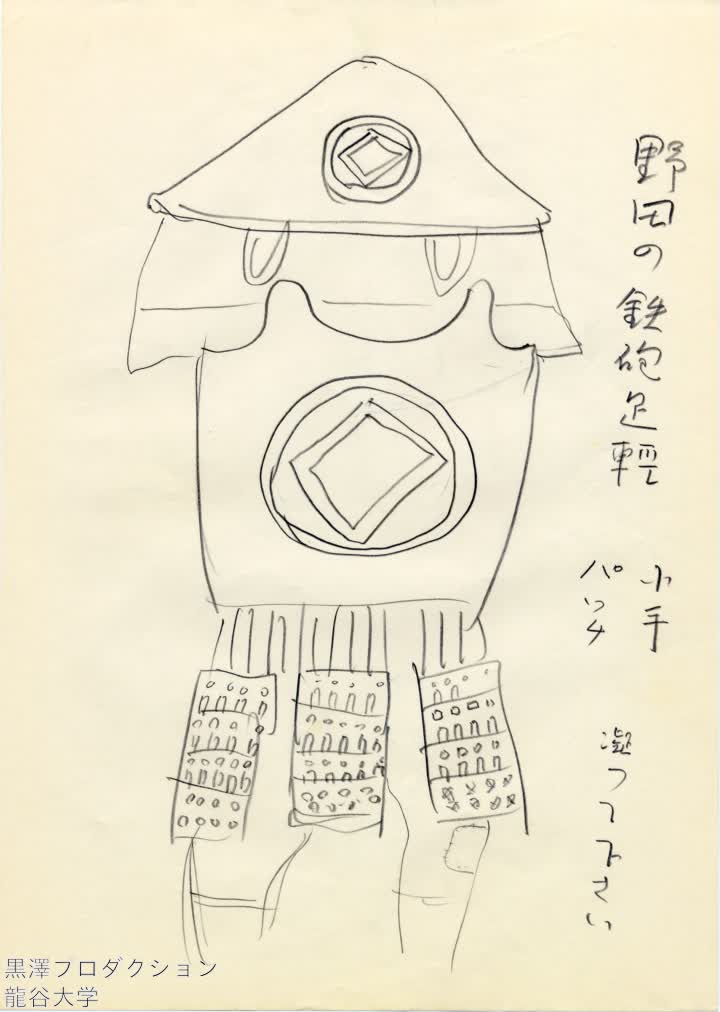 野田の鉄砲足軽
小手
パッチ
凝って下さい
黒澤プロダクション
龍谷大学